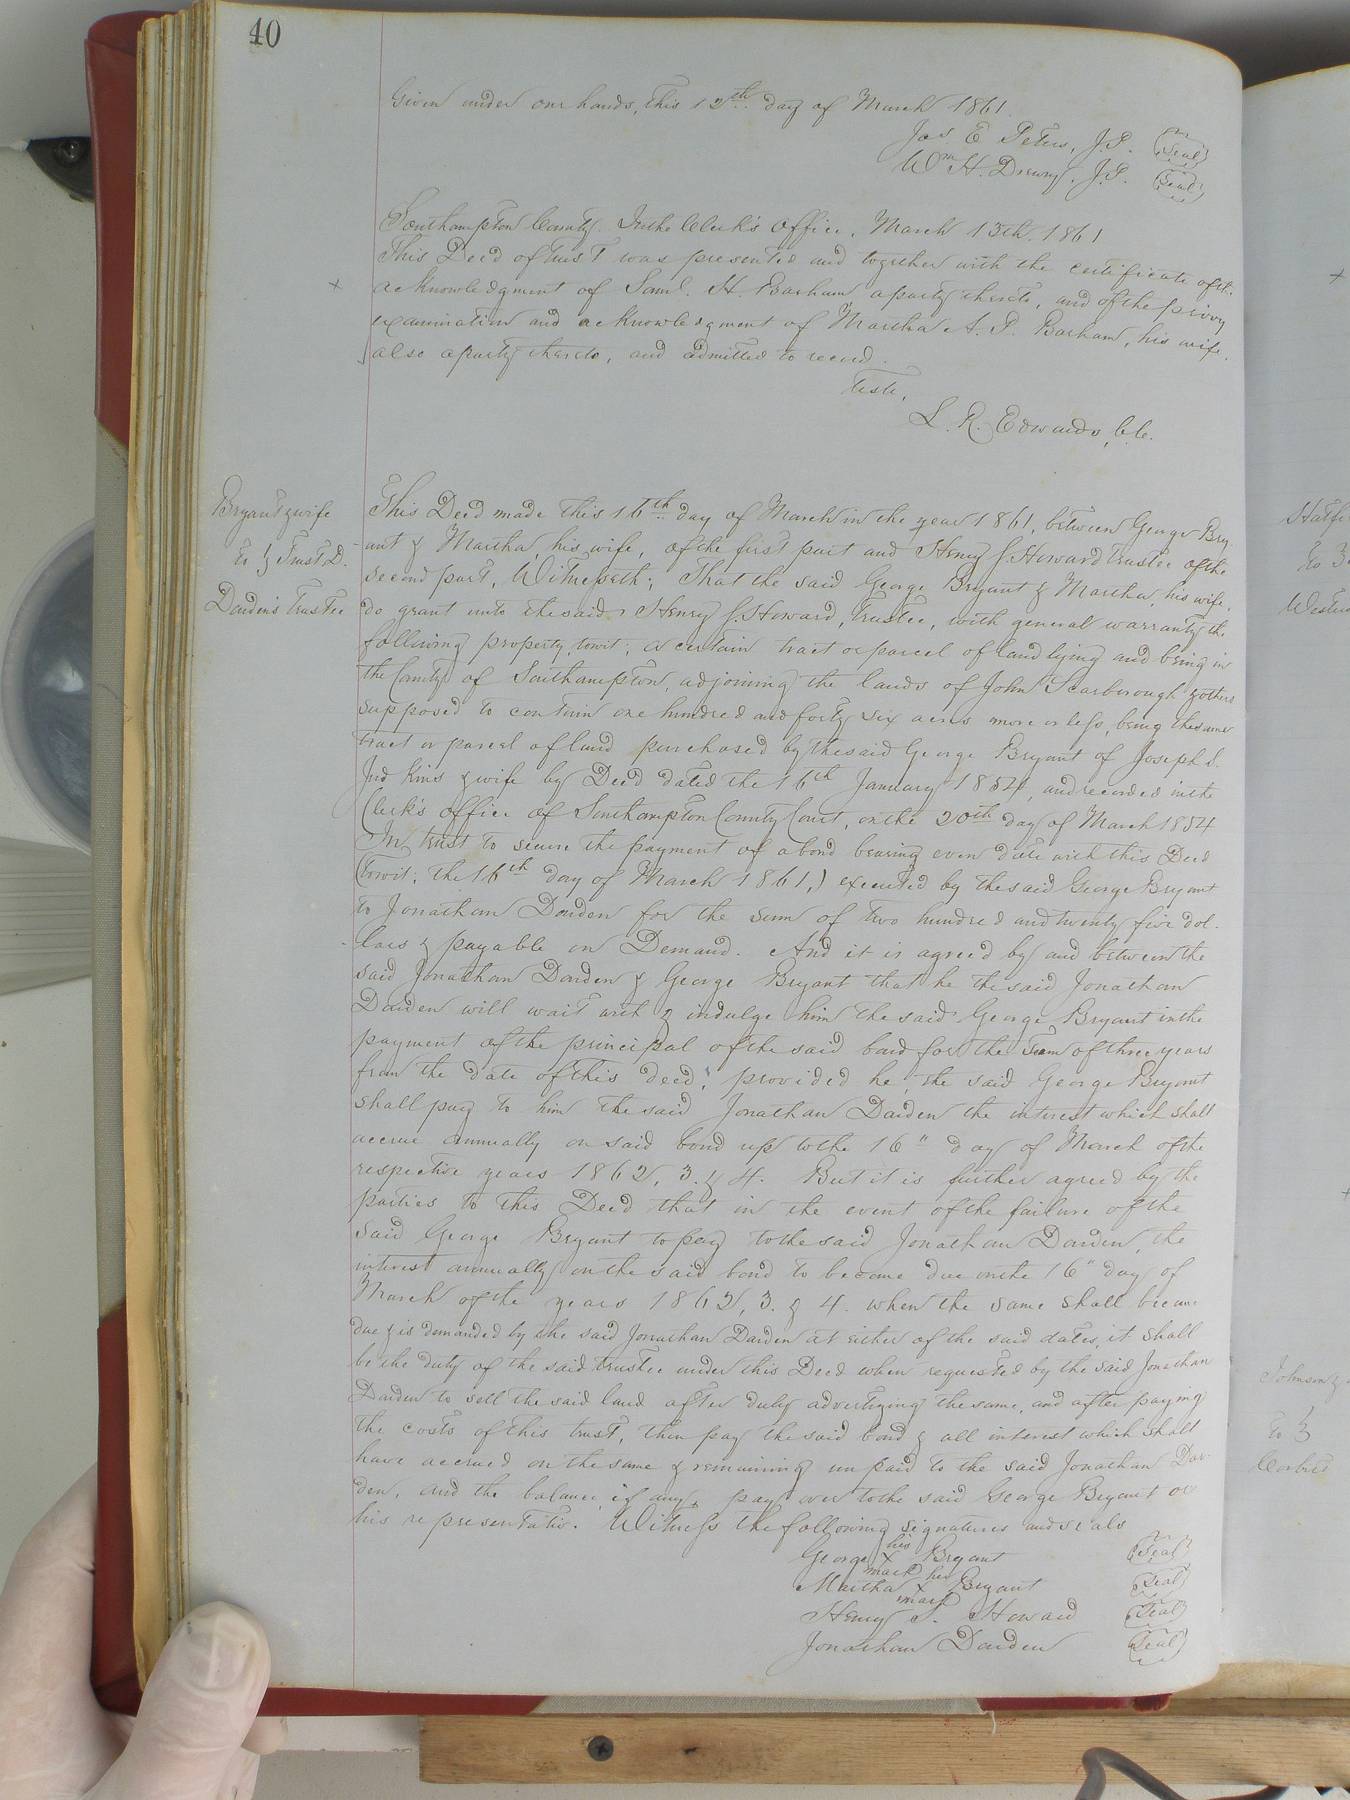 40
Given under our hands, this 12th day of March 1861.
Jas E Peters, J.P. (Seal)
Wm H. Drewry, J.P. (Seal)
Southampton County. In the Clerk's Office, March 13th, 1861
This Deed of Trust was presented and together with the certificate of the
acknowledgment of Saml. H. Barham a party thereto, and of the privy
examination and acknowledgment of Martha A. P. Barham, his wife,
also a party thereto, and admitted to record.
Teste,
L. R. Edwards, C.C.
Bryant & wife
To } Trust D.
Darden's Trustee
This Deed made this 16th day of March in the year 1861, between George Bry-
ant & Martha, his wife, of the first part and Henry J. Howard trustee of the
second part, Witnesseth; That the said George Bryant & Martha, his wife,
do grant unto the said Henry J. Howard, Trustee, with general warranty the
following property, towit; a certain tract or parcel of land lying and being in
the County of Southampton, adjoining the lands of John Scarborough & others
supposed to contain one hundred and forty six acres more or less, being the same
tract or parcel of land purchased by the said George Bryant of Joseph S.
Judkins & wife by Deed dated the 16th January 1854, and recorded in the
Clerk's office of Southampton County Court, on the 20th day of March 1854
In trust to secure the payment of a bond bearing even date with this Deed
(Towit; the 16th day of March 1861,) executed by the said George Bryant
to Jonathan Darden for the sum of two hundred and twenty five dol-
lars & payable on Demand. And it is agreed by and between the
said Jonathan Darden & George Bryant that he the said Jonathan
Darden will wait with & indulge him the said George Bryant in the
payment of the principal of the said bond for the Term of three years
from the date of this deed; provided he, the said George Bryant
shall pay to him the said Jonathan Darden the interest which shall
accrue annually on said bond up to the 16" day of March of the
respective years 1862, 3. & 4. But it is further agreed by the
parties to this Deed that in the event of the failure of the
said George Bryant to pay to the said Jonathan Darden, the
interest annually on the said bond to become due on the 16" day of
March of the years 1862, 3. & 4. when the same shall become
due & is demanded by the said Jonathan Darden at either of the said dates, it shall
be the duty of the said trustee under this Deed when requested by the said Jonathan
Darden to sell the said land after duly advertizing the same, and after paying
the costs of this trust, then pay the said bond & all interest which shall
have accrued on the same & remaining unpaid to the said Jonathan Dar-
den, and the balance, if any, pay over to the said George Bryant or
his representativ. Witness the following signatures and seals
his
George X Bryant (Seal)
mark her
Martha X Bryant (Seal)
mark
Henry J. Howard (Seal)
Jonathan Darden (Seal)
To 3
To 3